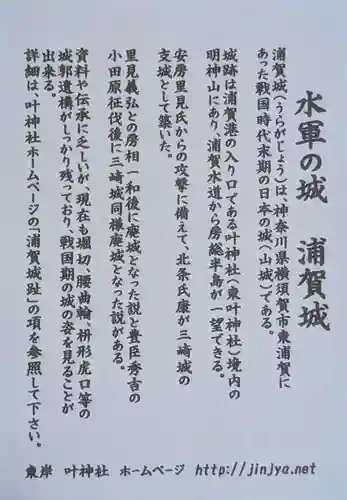 水軍の城　浦賀城
浦賀城（うらがじょう）は、神奈川県横須賀市東浦賀に
あった戦国時代末期の日本の城（山城）である。
城跡は浦賀港の入り口である叶神社（東叶神社）境内の
明神山にあり、浦賀水道から房総半島が一望できる。
安房里見氏からの攻撃に備えて、北条氏康が三崎城の
支城として築いた。
里見義弘との房相一和後に廃城となった説と豊臣秀吉の
小田原征伐後に三崎城同様廃城となった説がある。
資料や伝承に乏しいが、現在も堀切、腰曲輪、枡形虎口等の
城郭遺構がしっかり残っており、戦国期の城の姿を見ることが
出来る。
詳細は、叶神社ホームページの「浦賀城趾」の項を参照して下さい。
東岸　叶神社　ホームページ　http://jinjya.net/